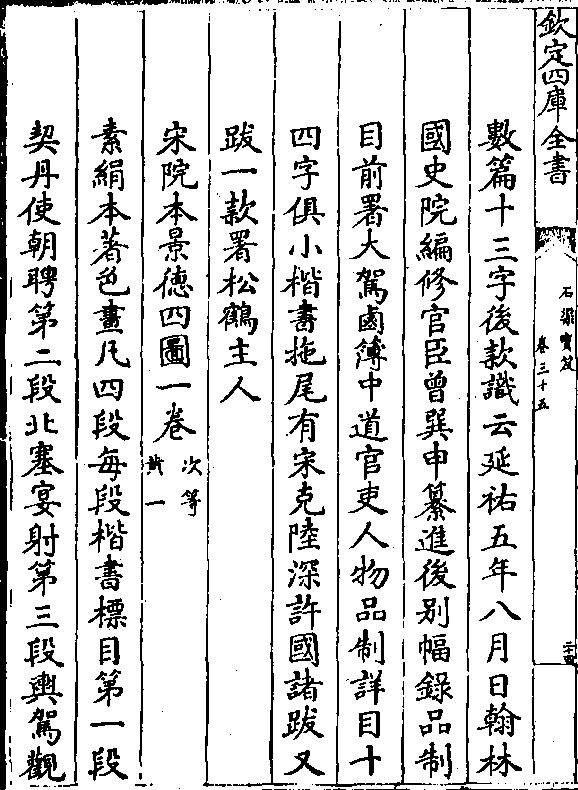 欽定四庫全書
石渠寶笈
卷三十五
數篇十三字後款識云延祐五年八月日翰林
國史院編修官臣曾巽申纂進後别幅錄品制
目前署大駕鹵簿中道官吏人物品制詳目十
四字俱小楷書拖尾有宋克陸深許國諸跋又
跋一款署松鶴主人
宋院本景德四圖一卷 次等
黃一
素絹本著色畫凡四段每段楷書標目第一段
契丹使朝聘第二段北塞宴射第三段輿駕觀